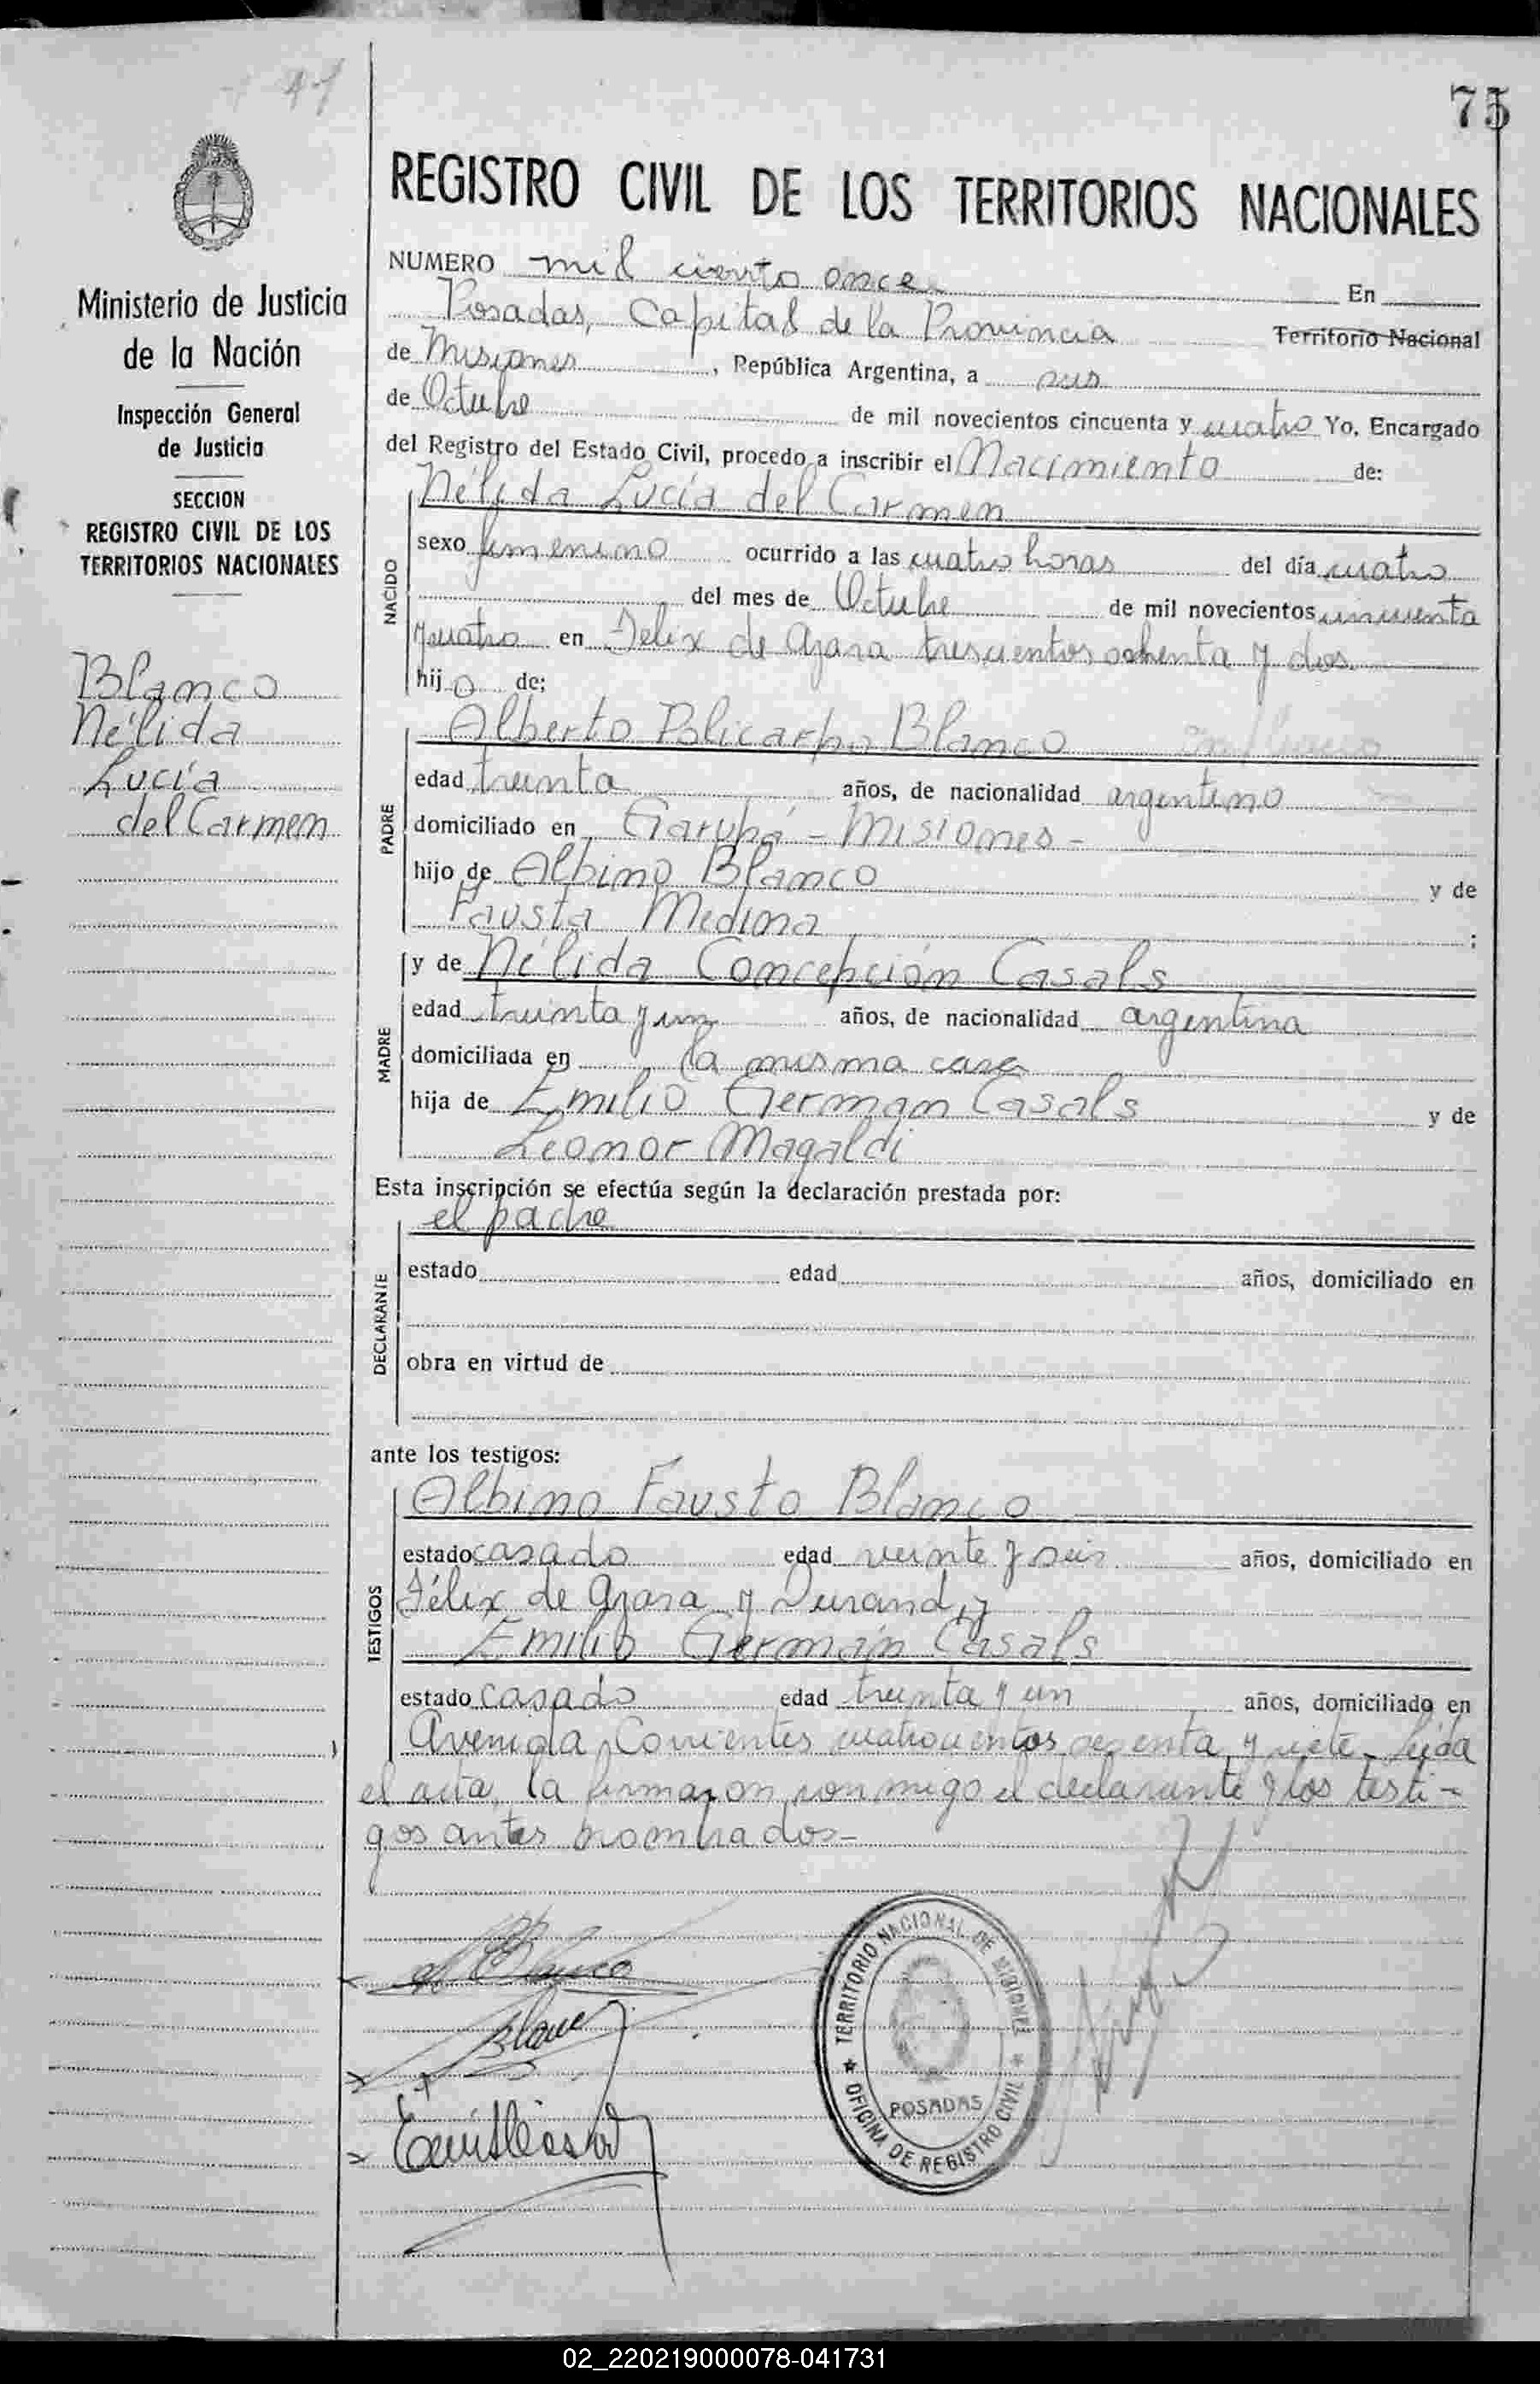 75
REGISTRO CIVIL DE LOS TERRITORIOS NACIONALES
Ministerio de Justicia
de la Nación
Inspección General
de Justicia
SECCION
REGISTRO CIVIL DE LOS
TERRITORIOS NACIONALES
Blanco
Nélida
Lucía
del Carmen
NUMERO mil ciento once En
Posadas, Capital de la Provincia Territorio Nacional
de Misiones, República Argentina, a seis
de Octubre de mil novecientos cincuenta y cuatro Yo, Encargado
del Registro del Estado Civil, procedo a inscribir el Nacimiento de:
NACIDO
Nélida Lucía del Carmen
sexo femenino ocurrido a las cuatro horas del día cuatro
del mes de Octubre de mil novecientos cincuenta
y cuatro en Felix de Azara trescientos ochenta y dos
hijo de:
PADRE
Alberto Policarpo Blanco
edad treinta años, de nacionalidad argentino
domiciliado en Garupá - Misiones -
hijo de Albino Blanco y de
Fausta Medina ;
MADRE
y de Nélida Concepción Casals
edad treinta y un años, de nacionalidad argentina
domiciliada en la misma casa
hija de Emilio German Casals y de
Leonor Magaldi
Esta inscripción se efectúa según la declaración prestada por:
DECLARANTE
el padre
estado edad años, domiciliado en
obra en virtud de
ante los testigos:
TESTIGOS
Albino Fausto Blanco
estado casado edad veinte y seis años, domiciliado en
Félix de Azara y Durand, y
Emilio Germán Casals
estado casado edad treinta y un años, domiciliado en
Avenida Corrientes cuatrocientos sesenta y siete - Leída
el acta, la firmaron conmigo el declarante y los testi-
gos antes nombrados -
Blanco
TERRITORIO NACIONAL DE MISIONES
POSADAS
OFICINA DE REGISTRO CIVIL
02_220219000078-041731